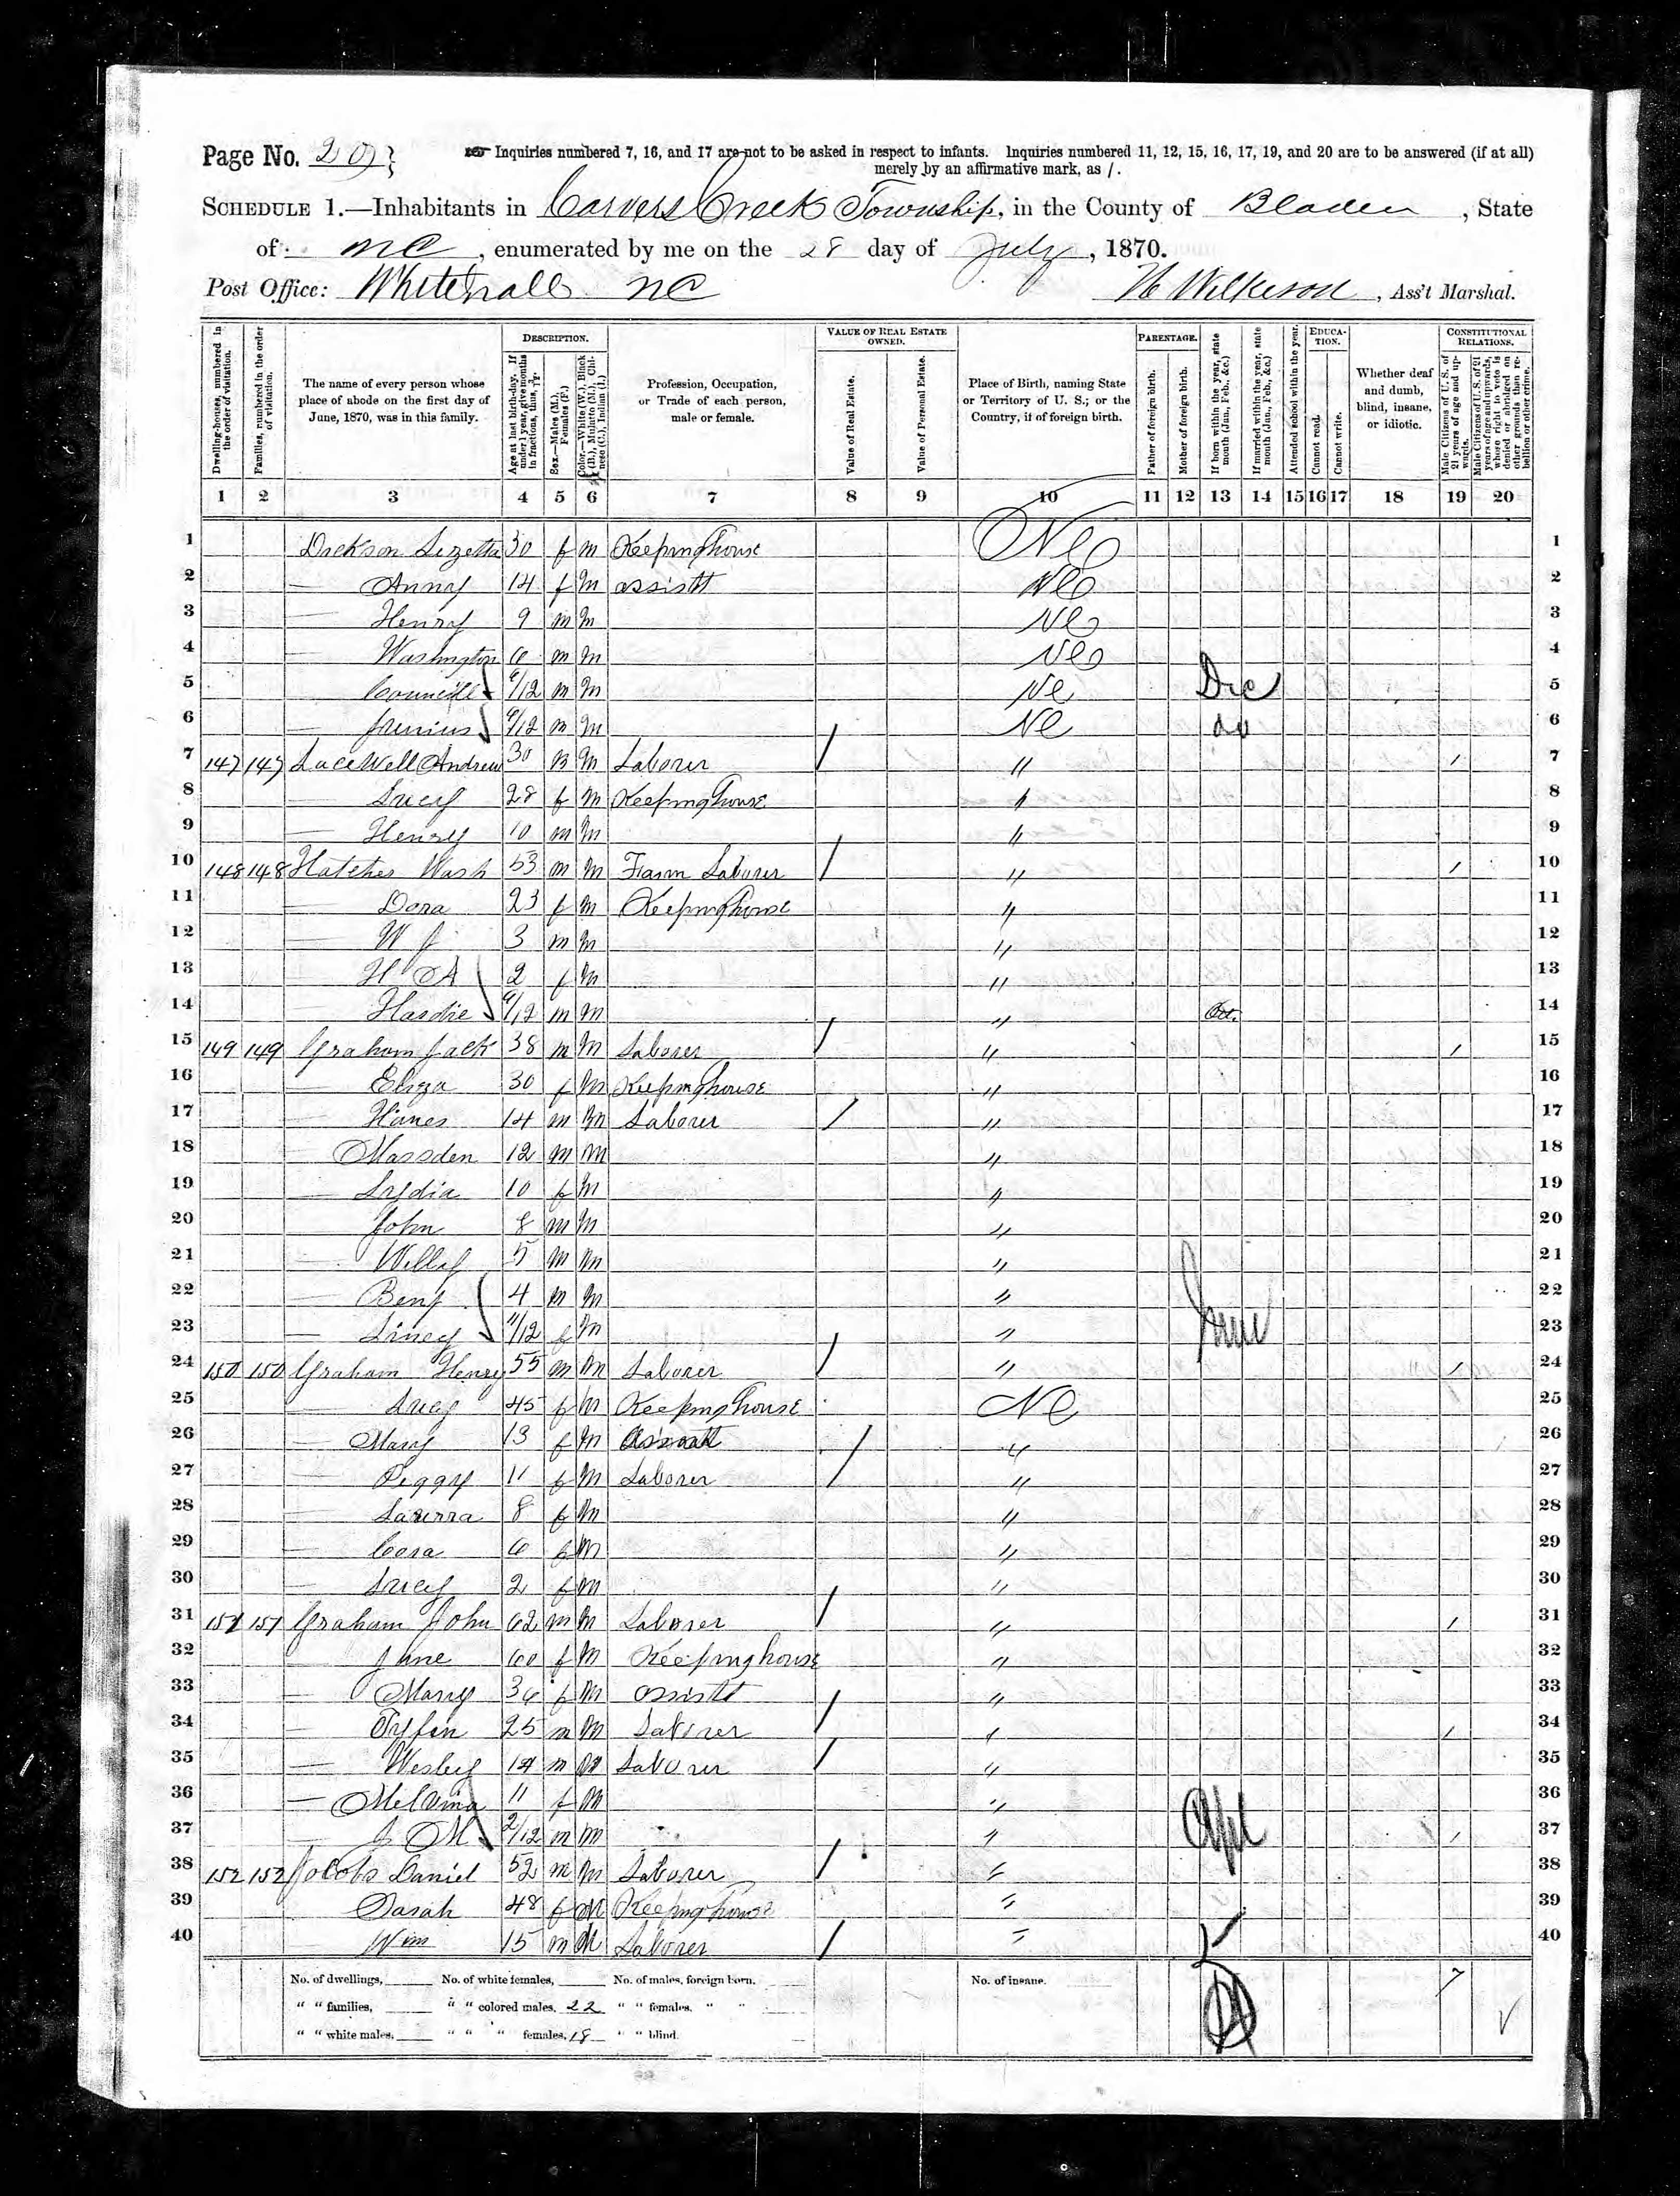 Page No. 20
Inquiries numbered 7, 16, and 17 are not to be asked in respect to infants. Inquiries numbered 11, 12, 15, 16, 17, 19, and 20 are to be answered (if at all)
merely by an affirmative mark, as /.
SCHEDULE 1.—Inhabitants in Carvers Creek Township, in the County of Bladen, State
of NC, enumerated by me on the 28 day of July, 1870.
Post Office: Whitehall NC Wilkerson, Ass't Marshal.
Dwelling-houses, numbered in the order of visitation.
Families, numbered in the order of visitation.
The name of every person whose place of abode on the first day of June, 1870, was in this family.
DESCRIPTION.
Age at last birth-day. If under 1 year, give months in fractions, thus, 3/12.
Sex.—Males (M.), Females (F.)
Color.—White (W.), Black (B.), Mulatto (M.), Chinese (C.), Indian (I.)
Profession, Occupation, or Trade of each person, male or female.
VALUE OF REAL ESTATE OWNED.
Value of Real Estate.
Value of Personal Estate.
Place of Birth, naming State or Territory of U. S.; or the Country, if of foreign birth.
PARENTAGE.
Father of foreign birth.
Mother of foreign birth.
If born within the year, state month (Jan., Feb., &c.)
If married within the year, state month (Jan., Feb., &c.)
Attended school within the year.
EDUCATION.
Cannot read.
Cannot write.
Whether deaf and dumb, blind, insane, or idiotic.
CONSTITUTIONAL RELATIONS.
Male Citizens of U. S. of 21 years of age and upwards.
Male Citizens of U. S. of 21 years of age and upwards, whose right to vote is denied or abridged on other grounds than rebellion or other crime.
1 2 3 4 5 6 7 8 9 10 11 12 13 14 15 16 17 18 19 20
1 Dickson Lizetta 30 f m Keeping house NC 1
2 — Anny 14 f m assistt NC 2
3 — Henry 9 m m NC 3
4 — Washington 6 m m NC 4
5 — Councill /12 m m NC Dec 5
6 — Junius /12 m m NC do 6
7 147 147 Lacewell Andrew 30 m Laborer / " / 7
8 — Lucy 28 f m Keeping house " 8
9 — Henry 10 m m " 9
10 148 148 Hatcher Wash 53 m m Farm Laborer / " / 10
11 — Dora 23 f m Keeping house " 11
12 — W J 3 m m " 12
13 — H A 2 f m " 13
14 — Hardie 9/12 m m " Oct. 14
15 149 149 Graham Jack 38 m m Laborer / " / 15
16 — Eliza 30 f m Keeping house " 16
17 — Hanes 14 m m Laborer / " 17
18 — Massden 12 m m " 18
19 — Lydia 10 f m " 19
20 — John 8 m m " 20
21 — Willy 5 m m " 21
22 — Benj 4 m m " 22
23 — Liney 11/12 f m " June 23
24 150 150 Graham Henry 55 m m Laborer / " / 24
25 — Lucy 45 f m Keeping house NC 25
26 — Mary 13 f m Assistt / " 26
27 — Peggy 11 f m Laborer / " 27
28 — 8 f m " 28
29 — Cora 6 f m " 29
30 — Lucy 2 f m " 30
31 151 151 Graham John 62 m m Laborer / " / 31
32 — Jane 60 f m Keeping house " 32
33 — Mary 36 f m assistt " 33
34 — 25 m m Laborer / " / 34
35 — Wesley 14 m m Laborer / " 35
36 — Melvina 11 f m " 36
37 — J M 2/12 m m " Apl / 37
38 152 152 Jacobs Daniel 52 m m Laborer / " 38
39 — Sarah 48 f M Keeping house " 39
40 — Wm 15 m M Laborer / " 40
No. of dwellings, No. of white females, No. of males, foreign born. No. of insane. 5 7
" " families, " " colored males, 22 " " females, " "
" " white males, " " " females, 18 " " blind.